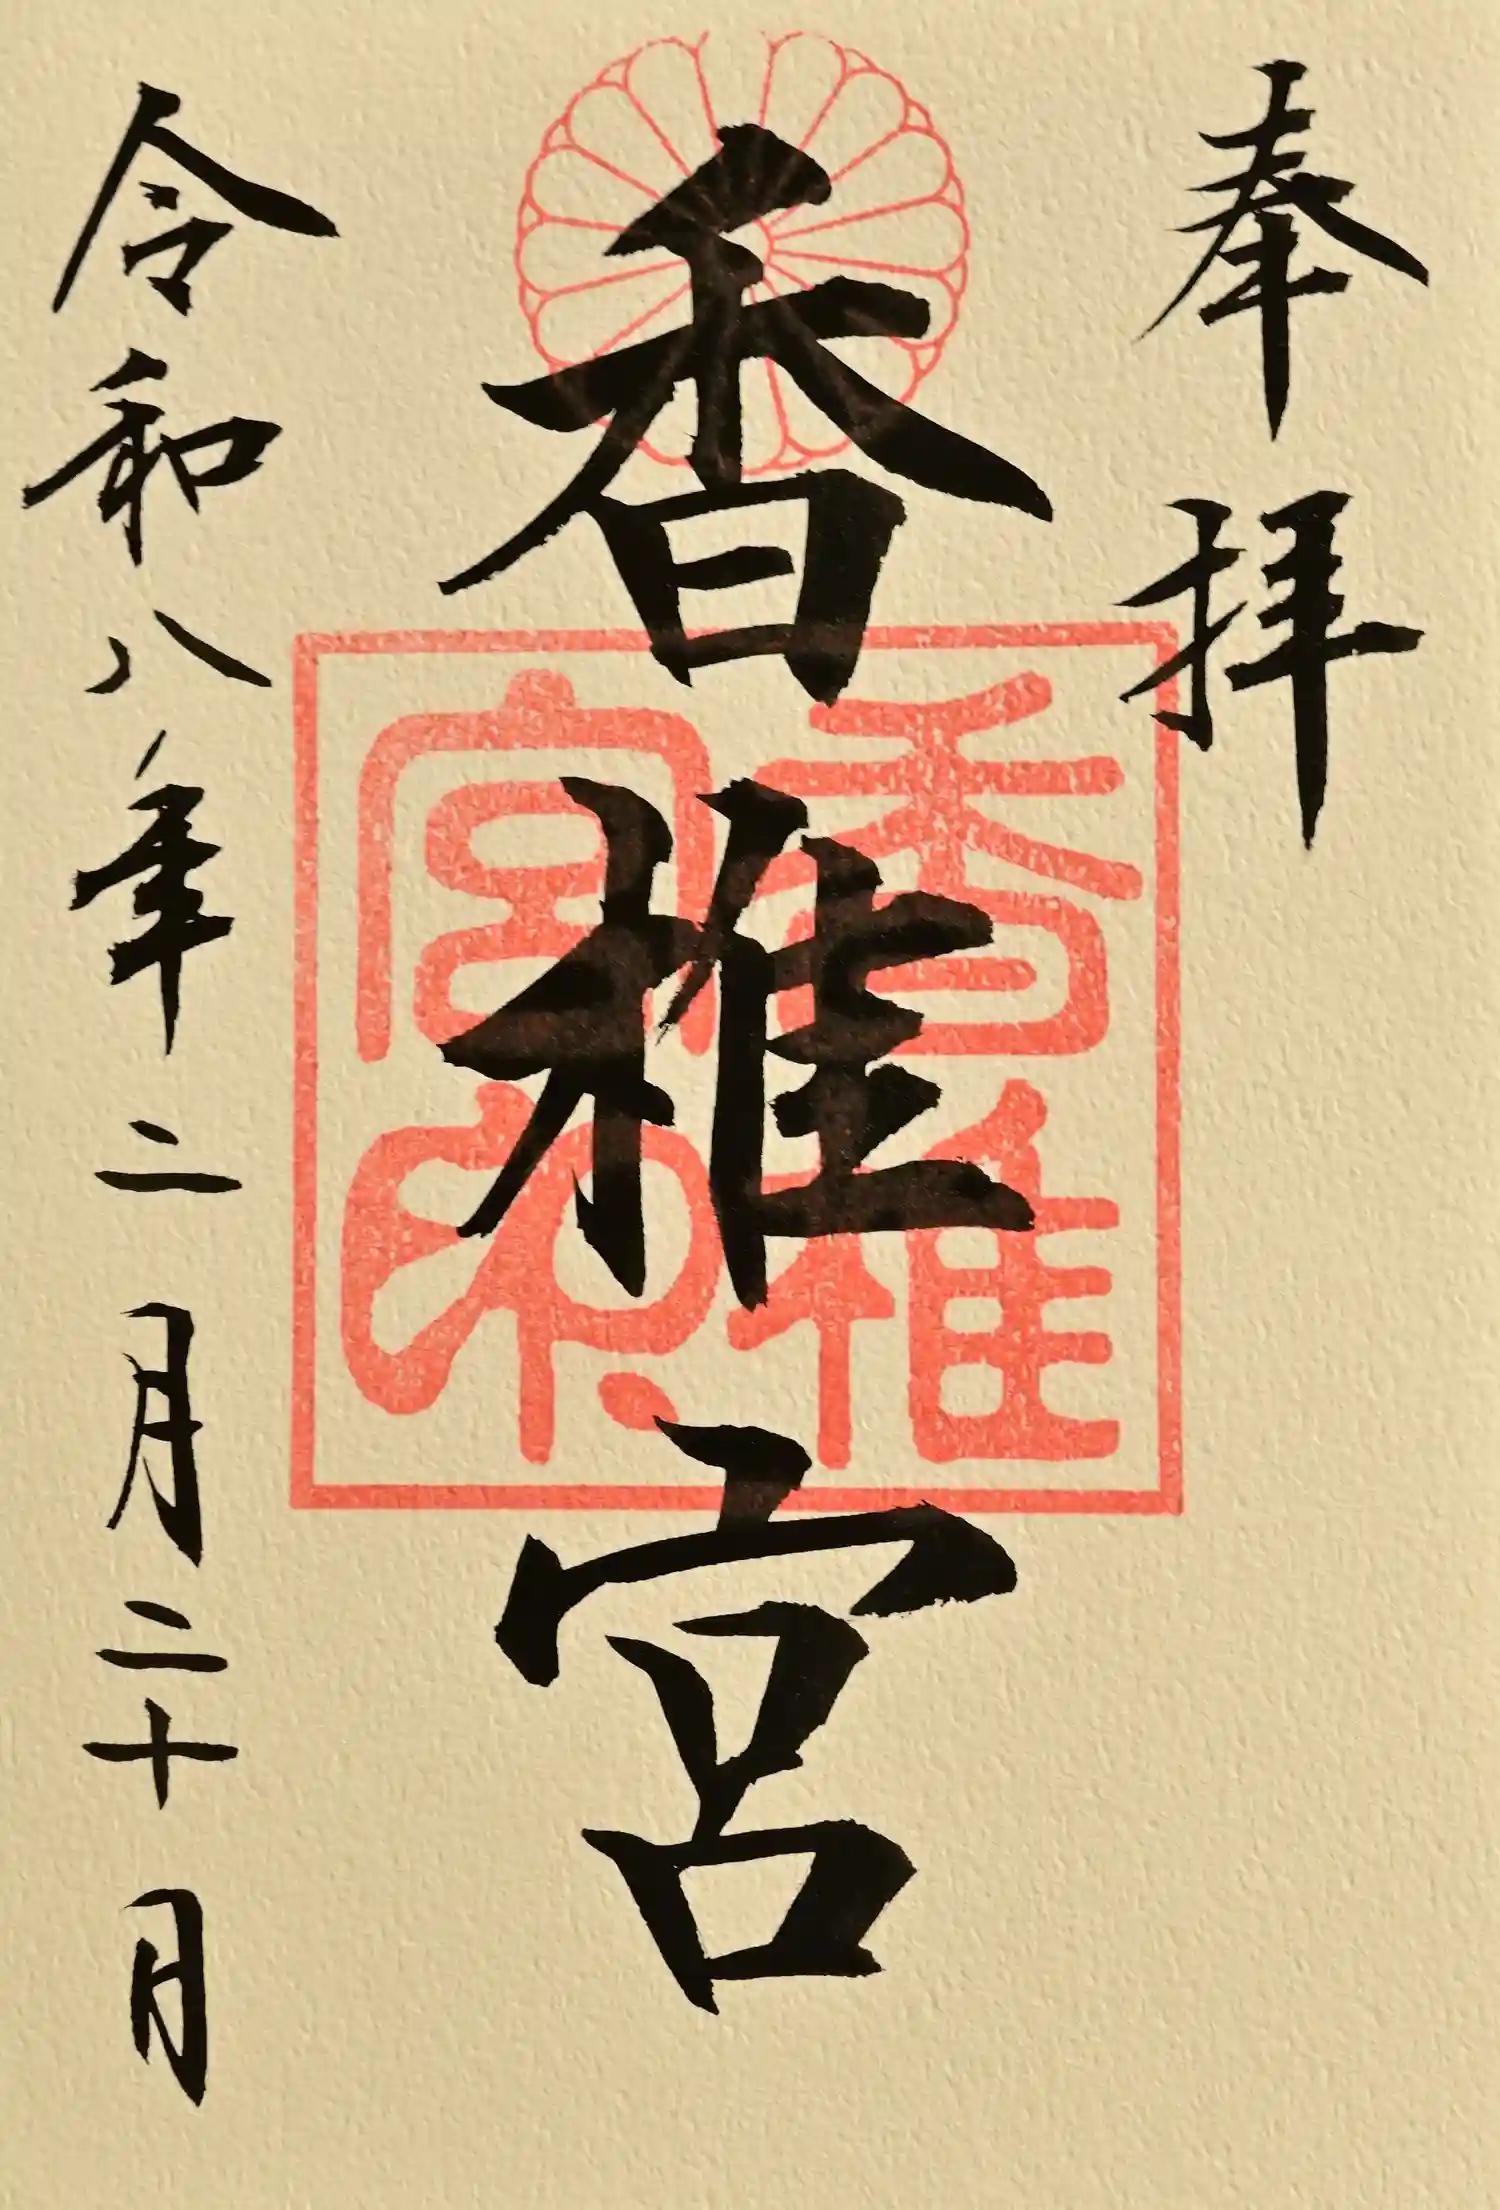 奉拝
香椎宮
香椎
宮印
令和八年二月二十日